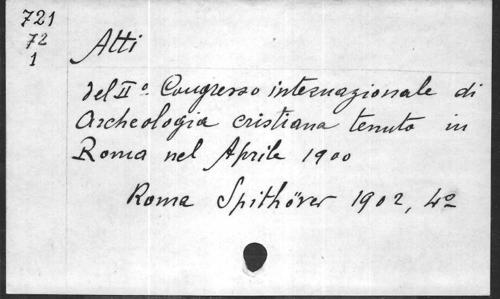 721
72
1
Atti
del IIº Congresso internazionale di
Archeologia cristiana tenuto in
Roma nel Aprile 1900
Roma Spithöver 1902, 4º